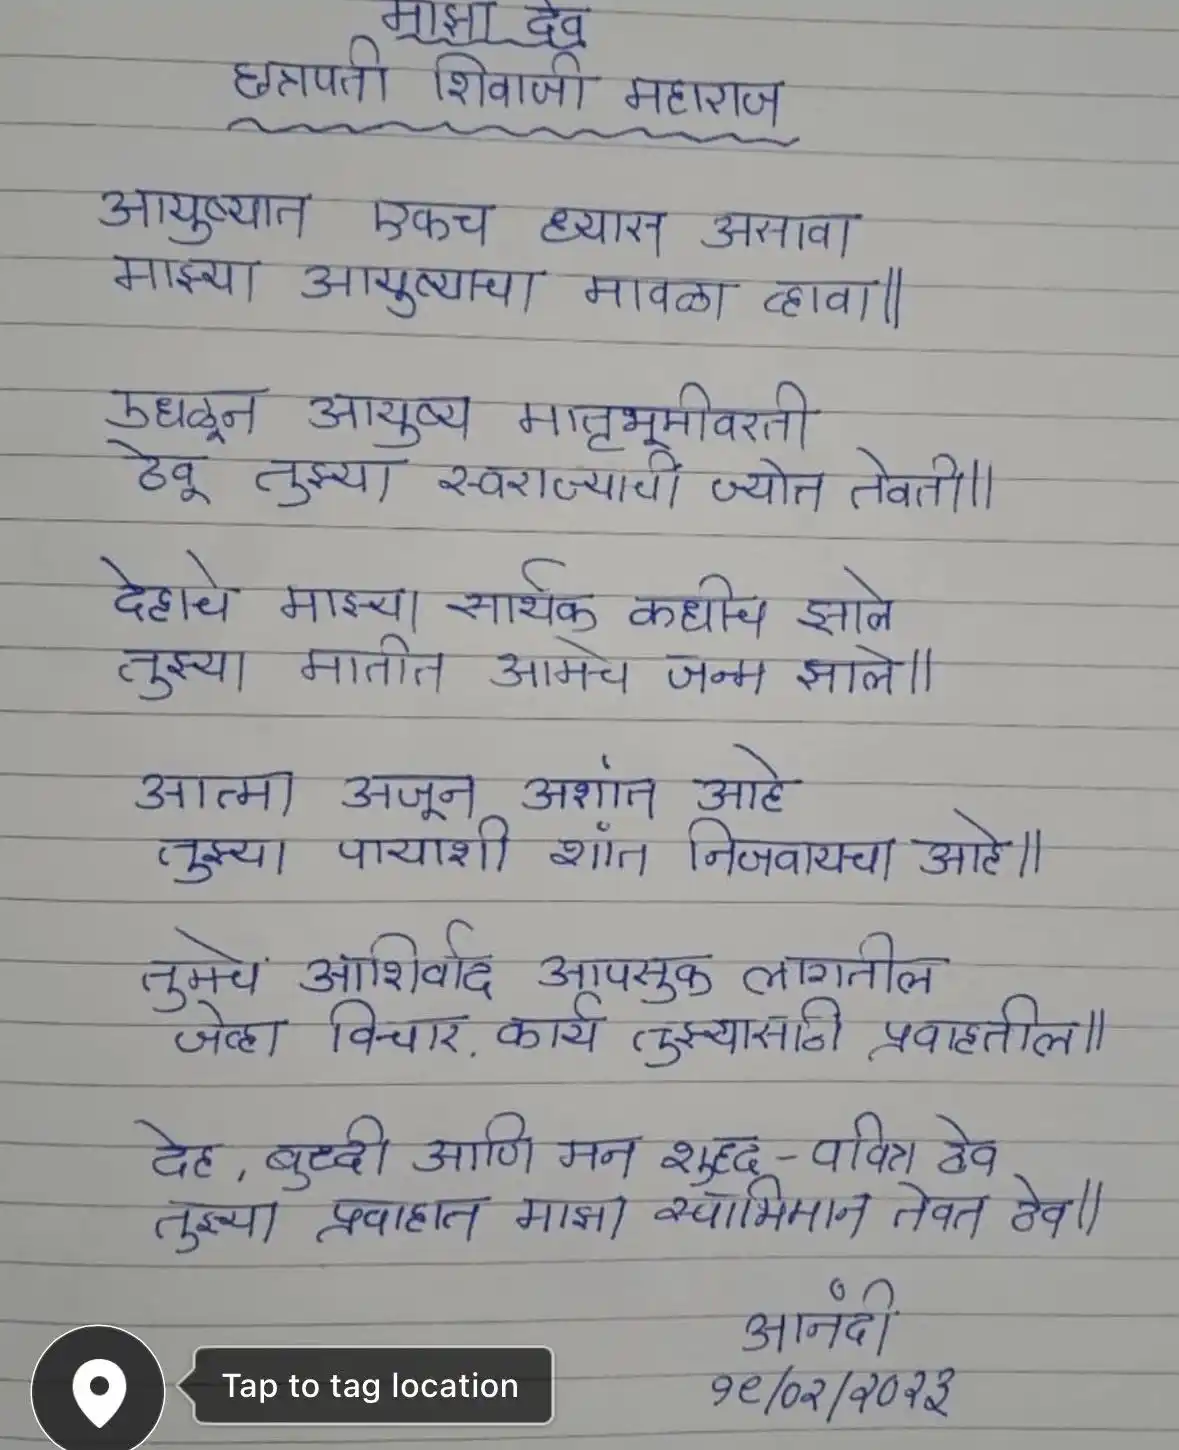 माझा देव
छत्रपती शिवाजी महाराज
आयुष्यात एकच ध्यास असावा
माझ्या आयुष्याचा मावळा व्हावा||
उधळून आयुष्य मातृभूमीवरती
ठेवू तुझ्या स्वराज्याची ज्योत तेवती||
देहाचे माझ्या सार्थक कधीच झाले
तुझ्या मातीत आमचे जन्म झाले||
आत्मा अजून अशांत आहे
तुझ्या पायाशी शांत निजवायचा आहे||
तुमचे आशिर्वाद आपसुक लागतील
जेव्हा विचार, कार्य तुझ्यासाठी प्रवाहतील||
देह, बुध्दी आणि मन शुध्द - पवित्र ठेव
तुझ्या प्रवाहात माझा स्वाभिमान तेवत ठेव||
आनंदी
१९/०२/२०२३
Tap to tag location